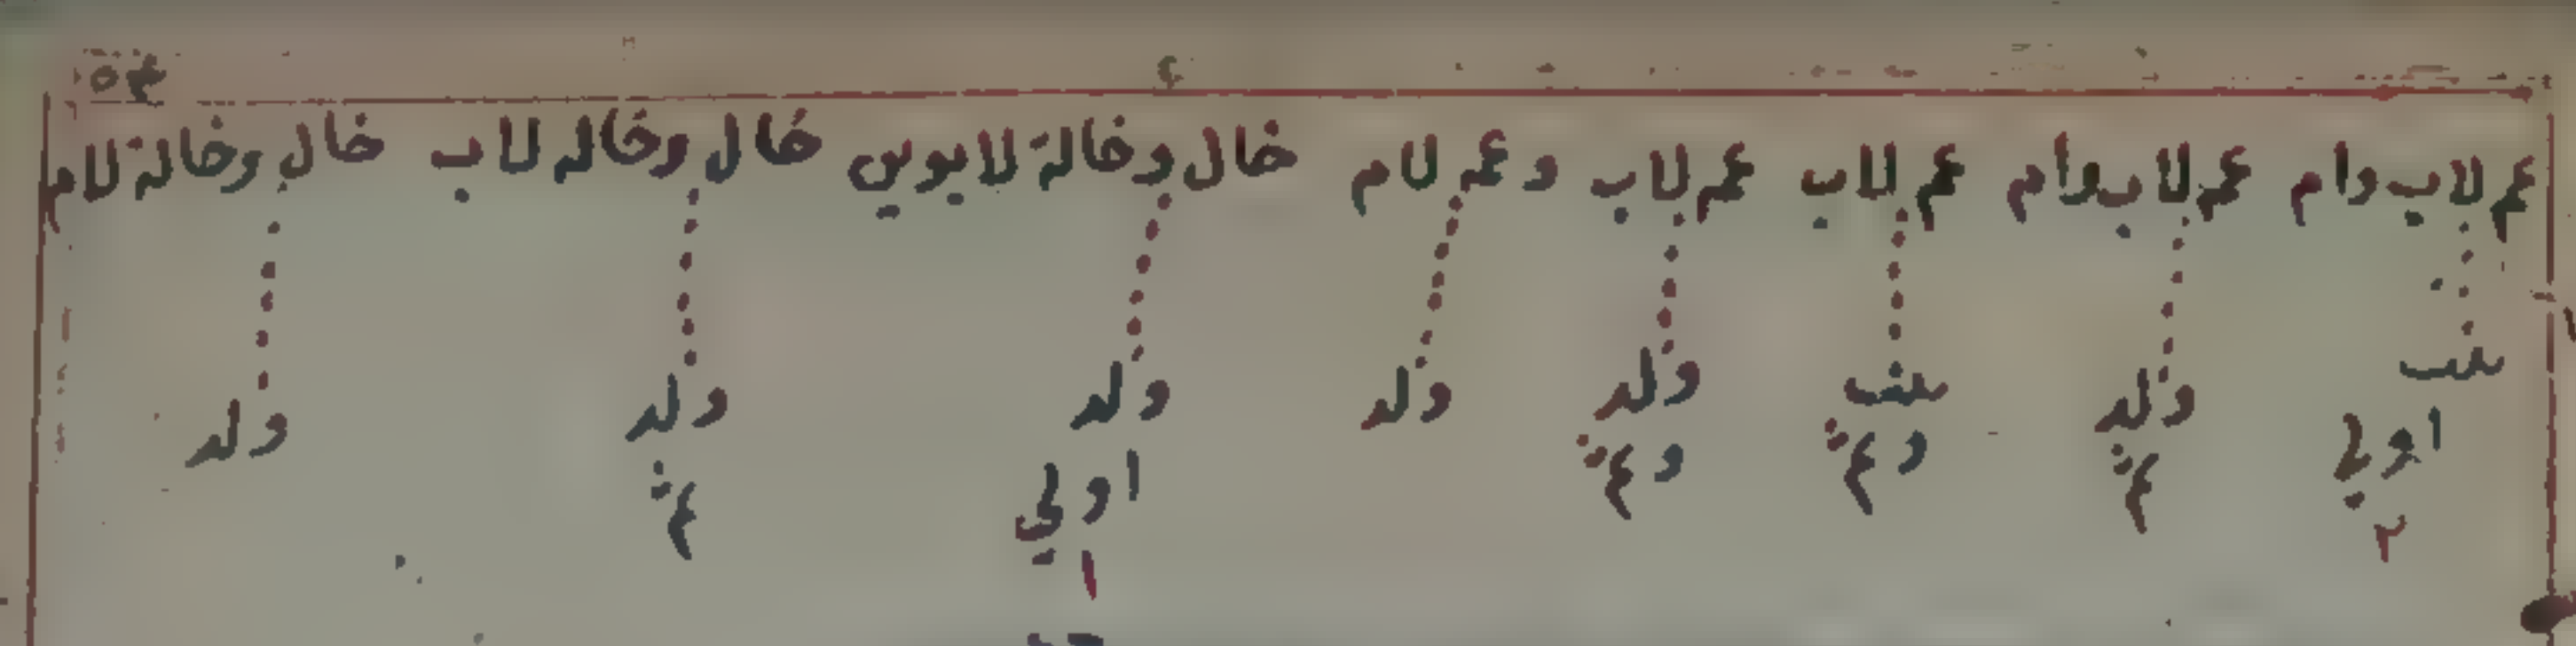 عم لاب وام عم لاب وام عم لاب عم لاب و عم لام خال وخالة لابوين خال وخاله لاب خال وخالة لام
بنت ولد بنت ولد ولد ولد ولد ولد
اولي اولي
٢ ١